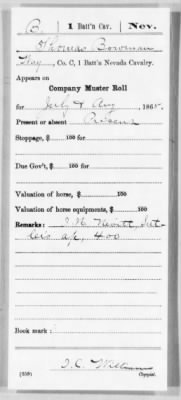 B. 1 Batt'n Cav. Nev.
Thomas Bowman
, Co. C, 1 Batt'n Nevada Cavalry.
Appears on
Company Muster Roll
for July & Aug, 1865.
Present or absent Present
Stoppage, $ 100 for
Due Gov't, $ 100 for
Valuation of horse, $ 100
Valuation of horse equipments, $ 100
Remarks: J. H. Sut-
lers ap. 4.00
Book mark:
J. C.
(359) Copyist.